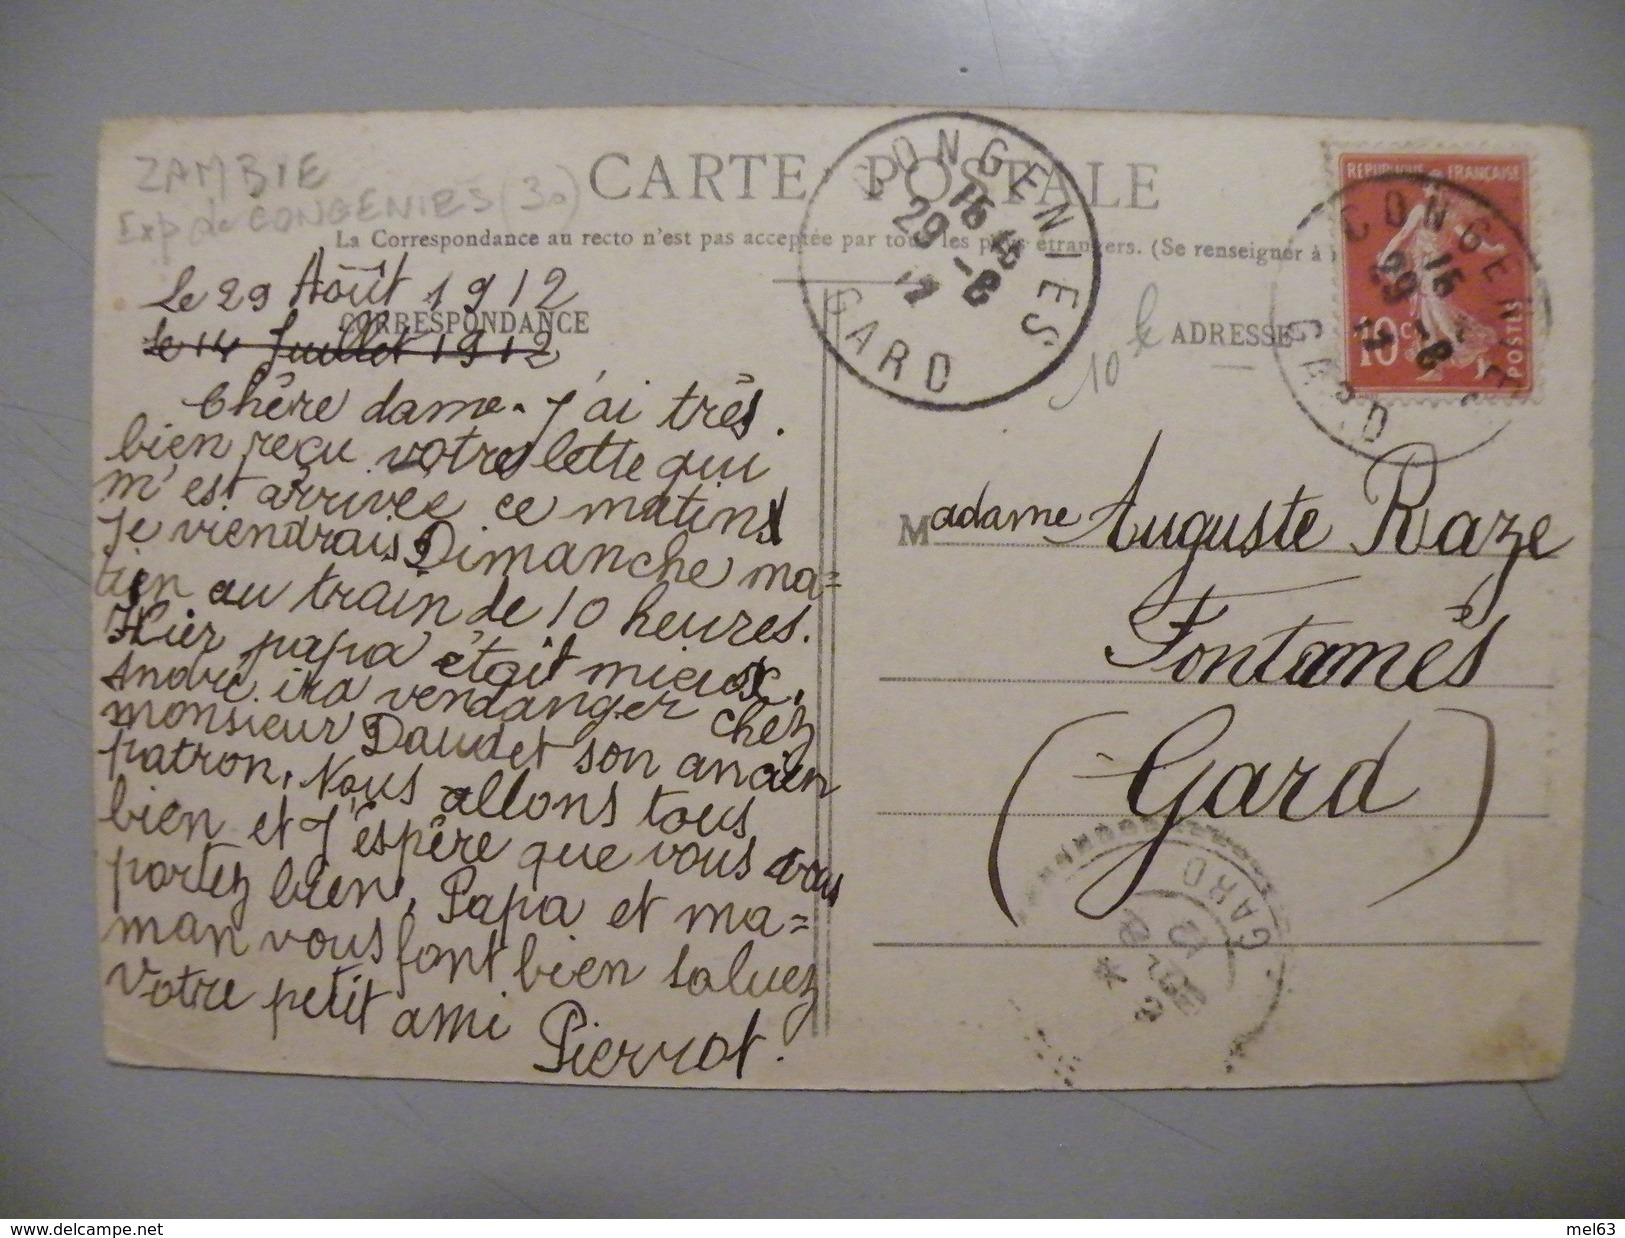 ZAMBIE
Exp de CONGENIES (30)
CARTE POSTALE
La Correspondance au recto n'est pas acceptée par tous les pays étrangers. (Se renseigner à
CORRESPONDANCE
Le 29 Août 1912
Le 14 Juillet 1912
Chère dame. J'ai très
bien reçu votre lette qui
m'est arrivée ce matin
Je viendrais Dimanche ma=
tien au train de 10 heures.
Hier papa était mieux.
André ira vendanger chez
monsieur Daudet son ancien
patron. Nous allons tous
bien et J'espère que vous vous
portez bien. Papa et ma=
man vous font bien saluez
Votre petit ami Pierrot.
CONGENIES
15 15
29 -8
12
GARD
10 €
ADRESSE
REPUBLIQUE FRANÇAISE
10c
POSTES
CONGENIES
15
29 -8
12
GARD
Madame Auguste Raze
Fontanès
(Gard)
GARD
delcampe.net
mel63